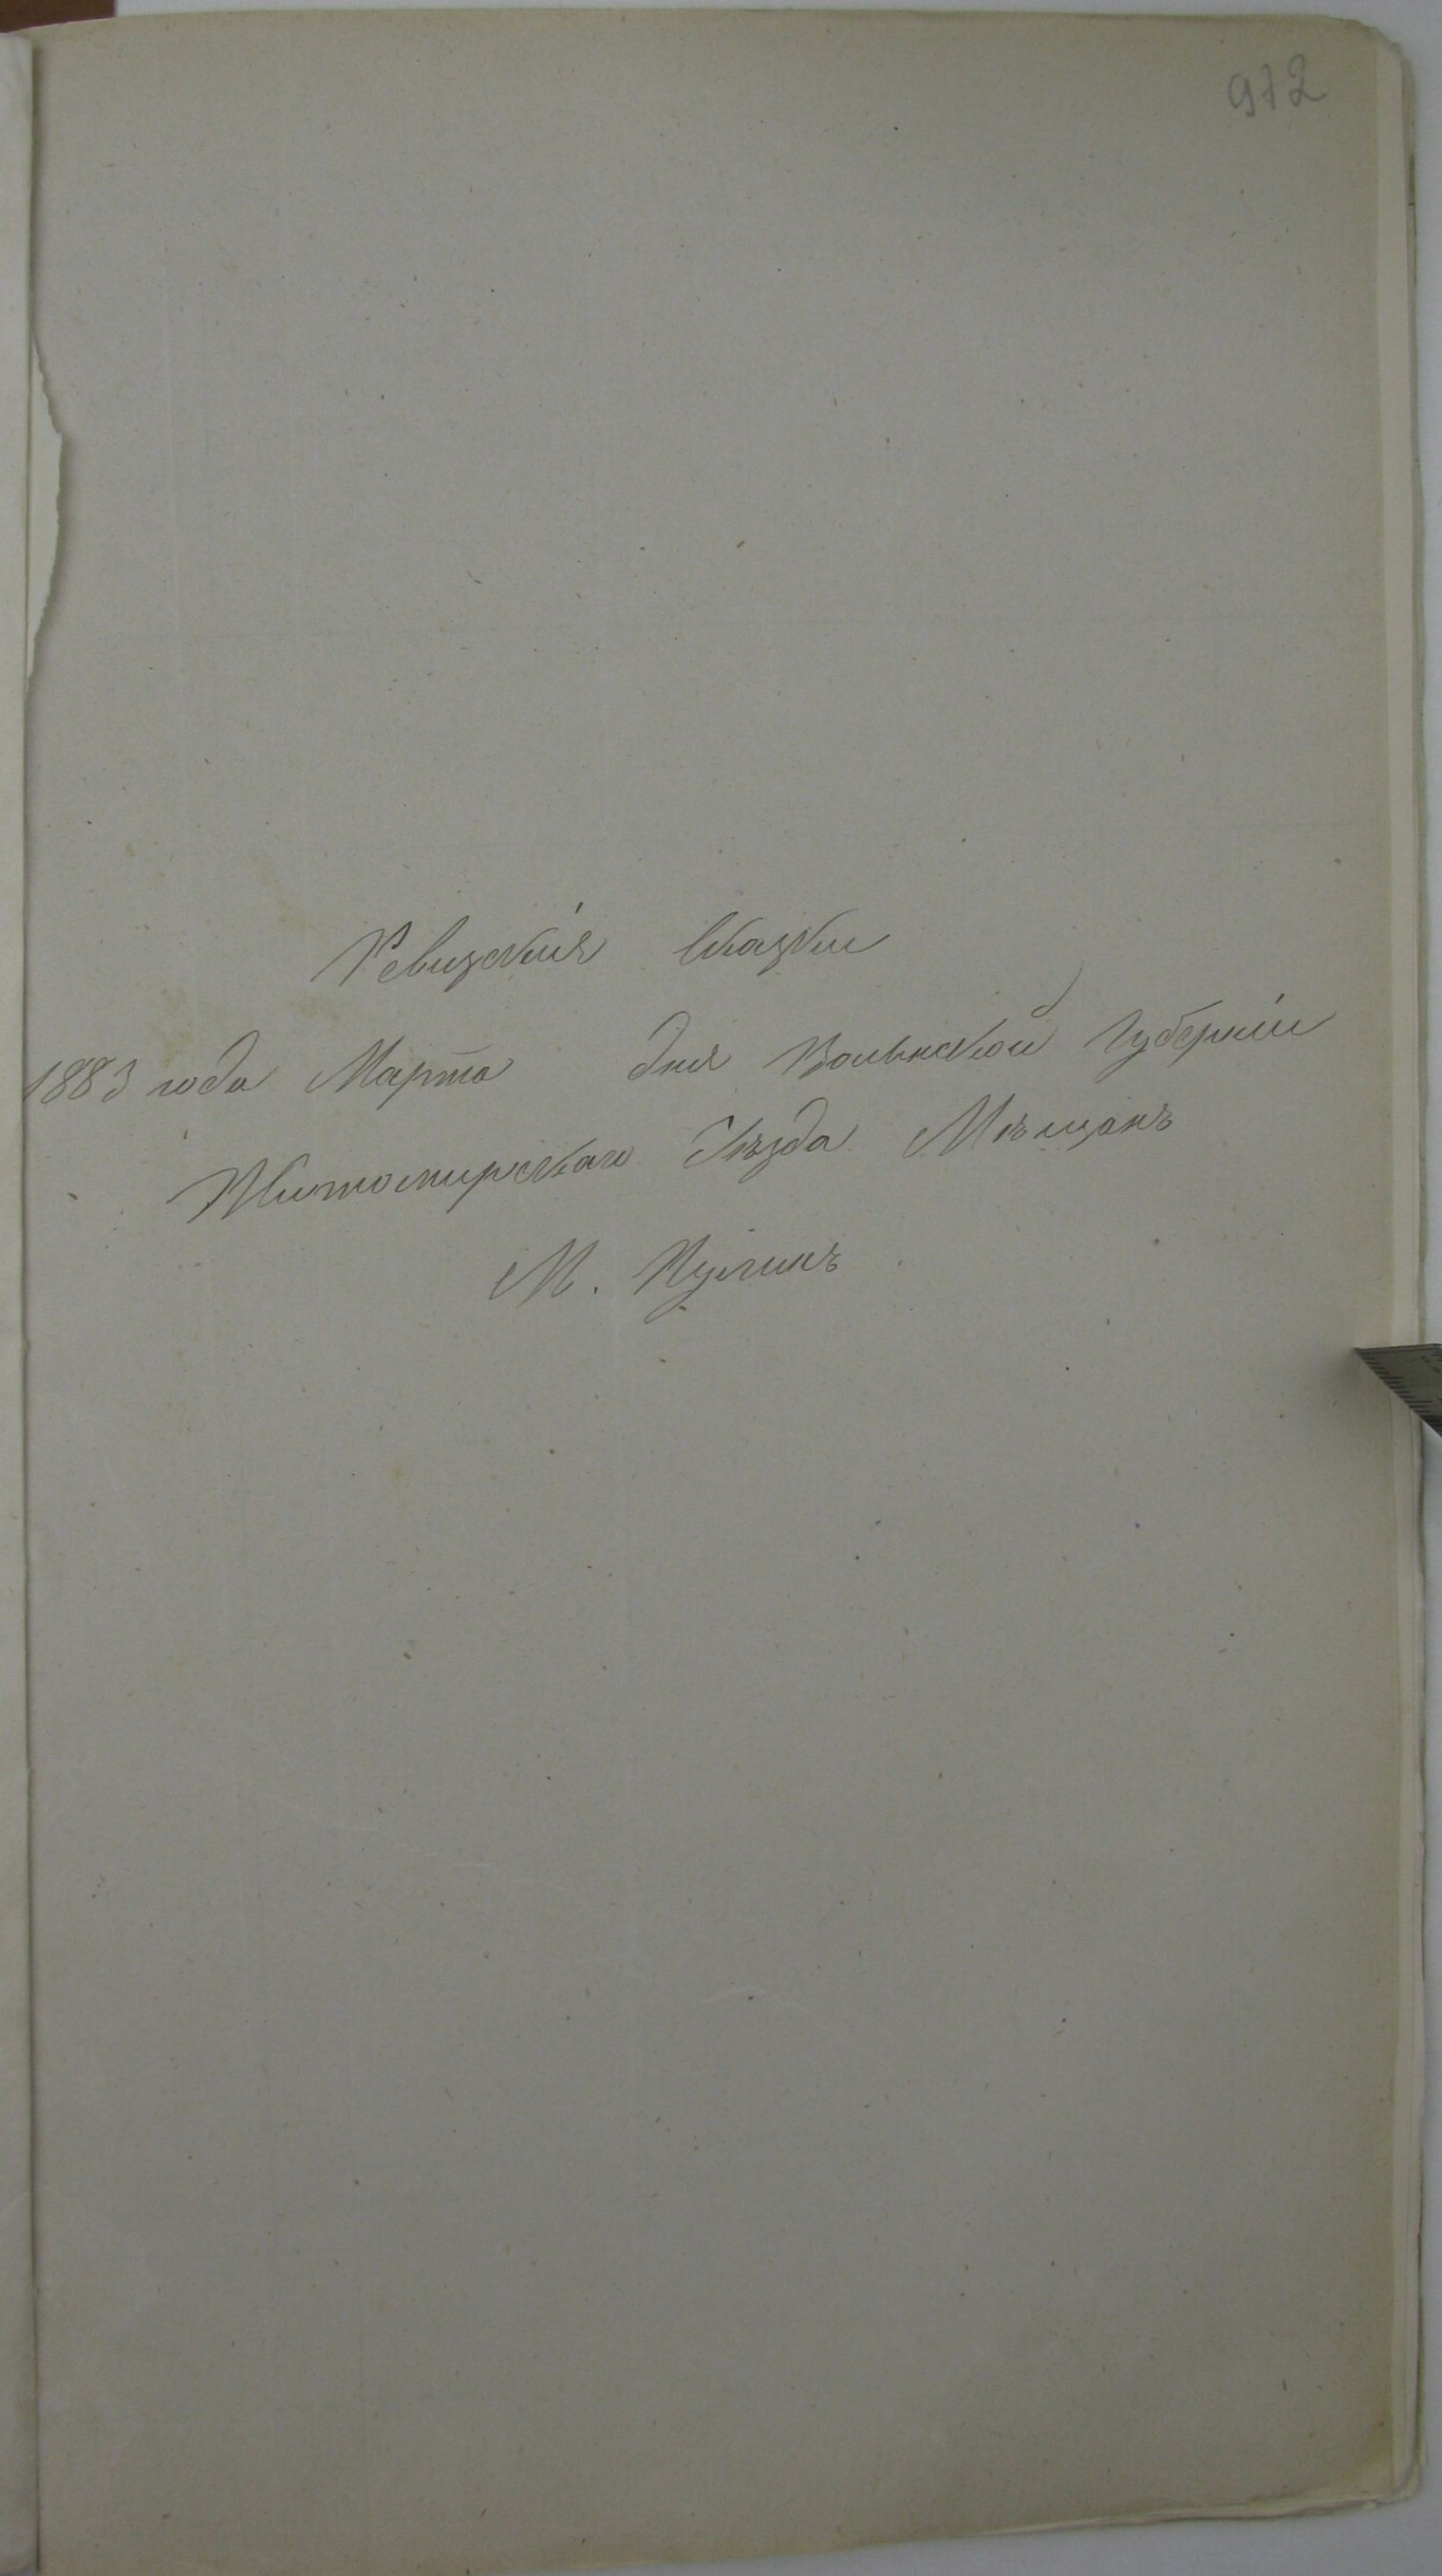 972
Ревизскія Сказки
1883 года Марта дня Волынской Губерніи
Житомирскаго Уѣзда Мѣщанъ
М. Пулинъ